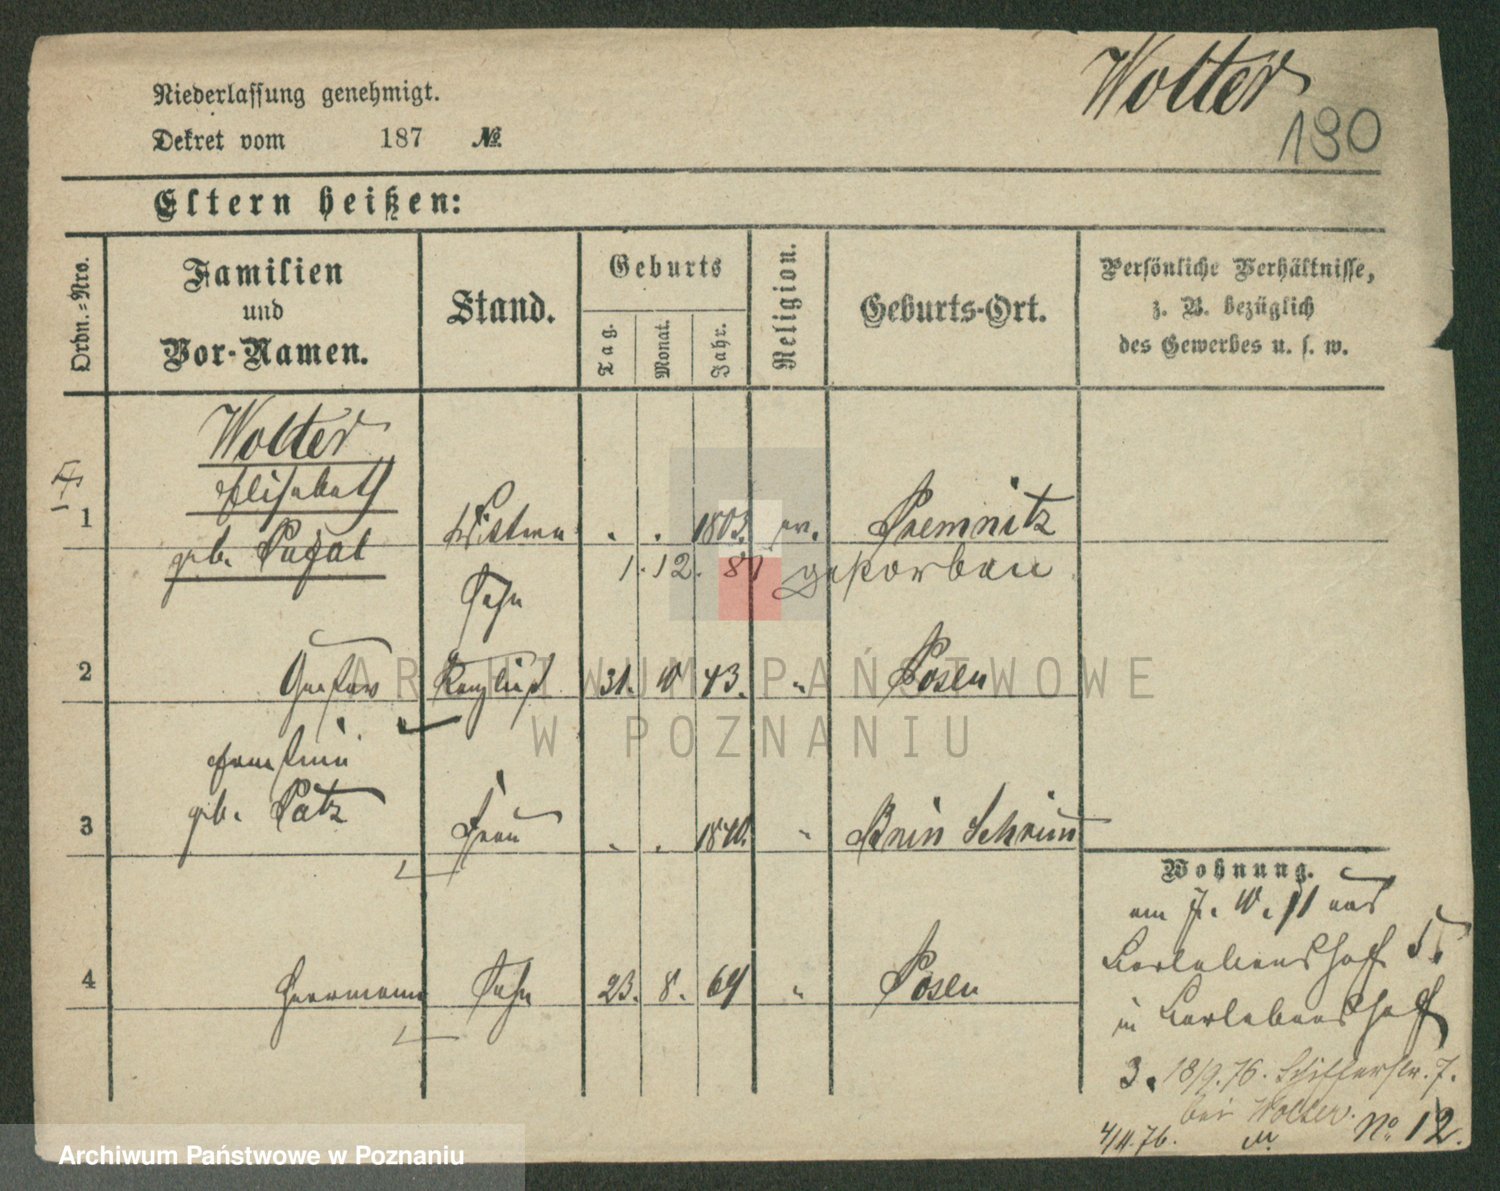 Wolter
190
Niederlassung genehmigt.
Dekret vom 187 №
Eltern heißen:
Ordn.=Nro.
Familien
und
Vor-Namen.
Stand.
Geburts
Tag.
Monat.
Jahr.
Religion.
Geburts-Ort.
Persönliche Verhältnisse,
z. B. bezüglich
des Gewerbes u. s. w.
Wolter
Elisabeth
1 geb. Wittwe . . 1803. ev. Premnitz
1. 12. 81 gestorben
Sohn
2 Gustav Kanzlist 31. 10 43. " Posen
geb. Patz
3 Frau . . 1840. " Brin Schrim
4 Herrmann Sohn 23. 8. 69 " Posen
Wohnung.
am 7. 10. 71 aus
in
3. 18/9. 76. Schifferstr. 7.
bei Wolter.
4/11.76. No 12.
ARCHIWUM PAŃSTWOWE
W POZNANIU
Archiwum Państwowe w Poznaniu